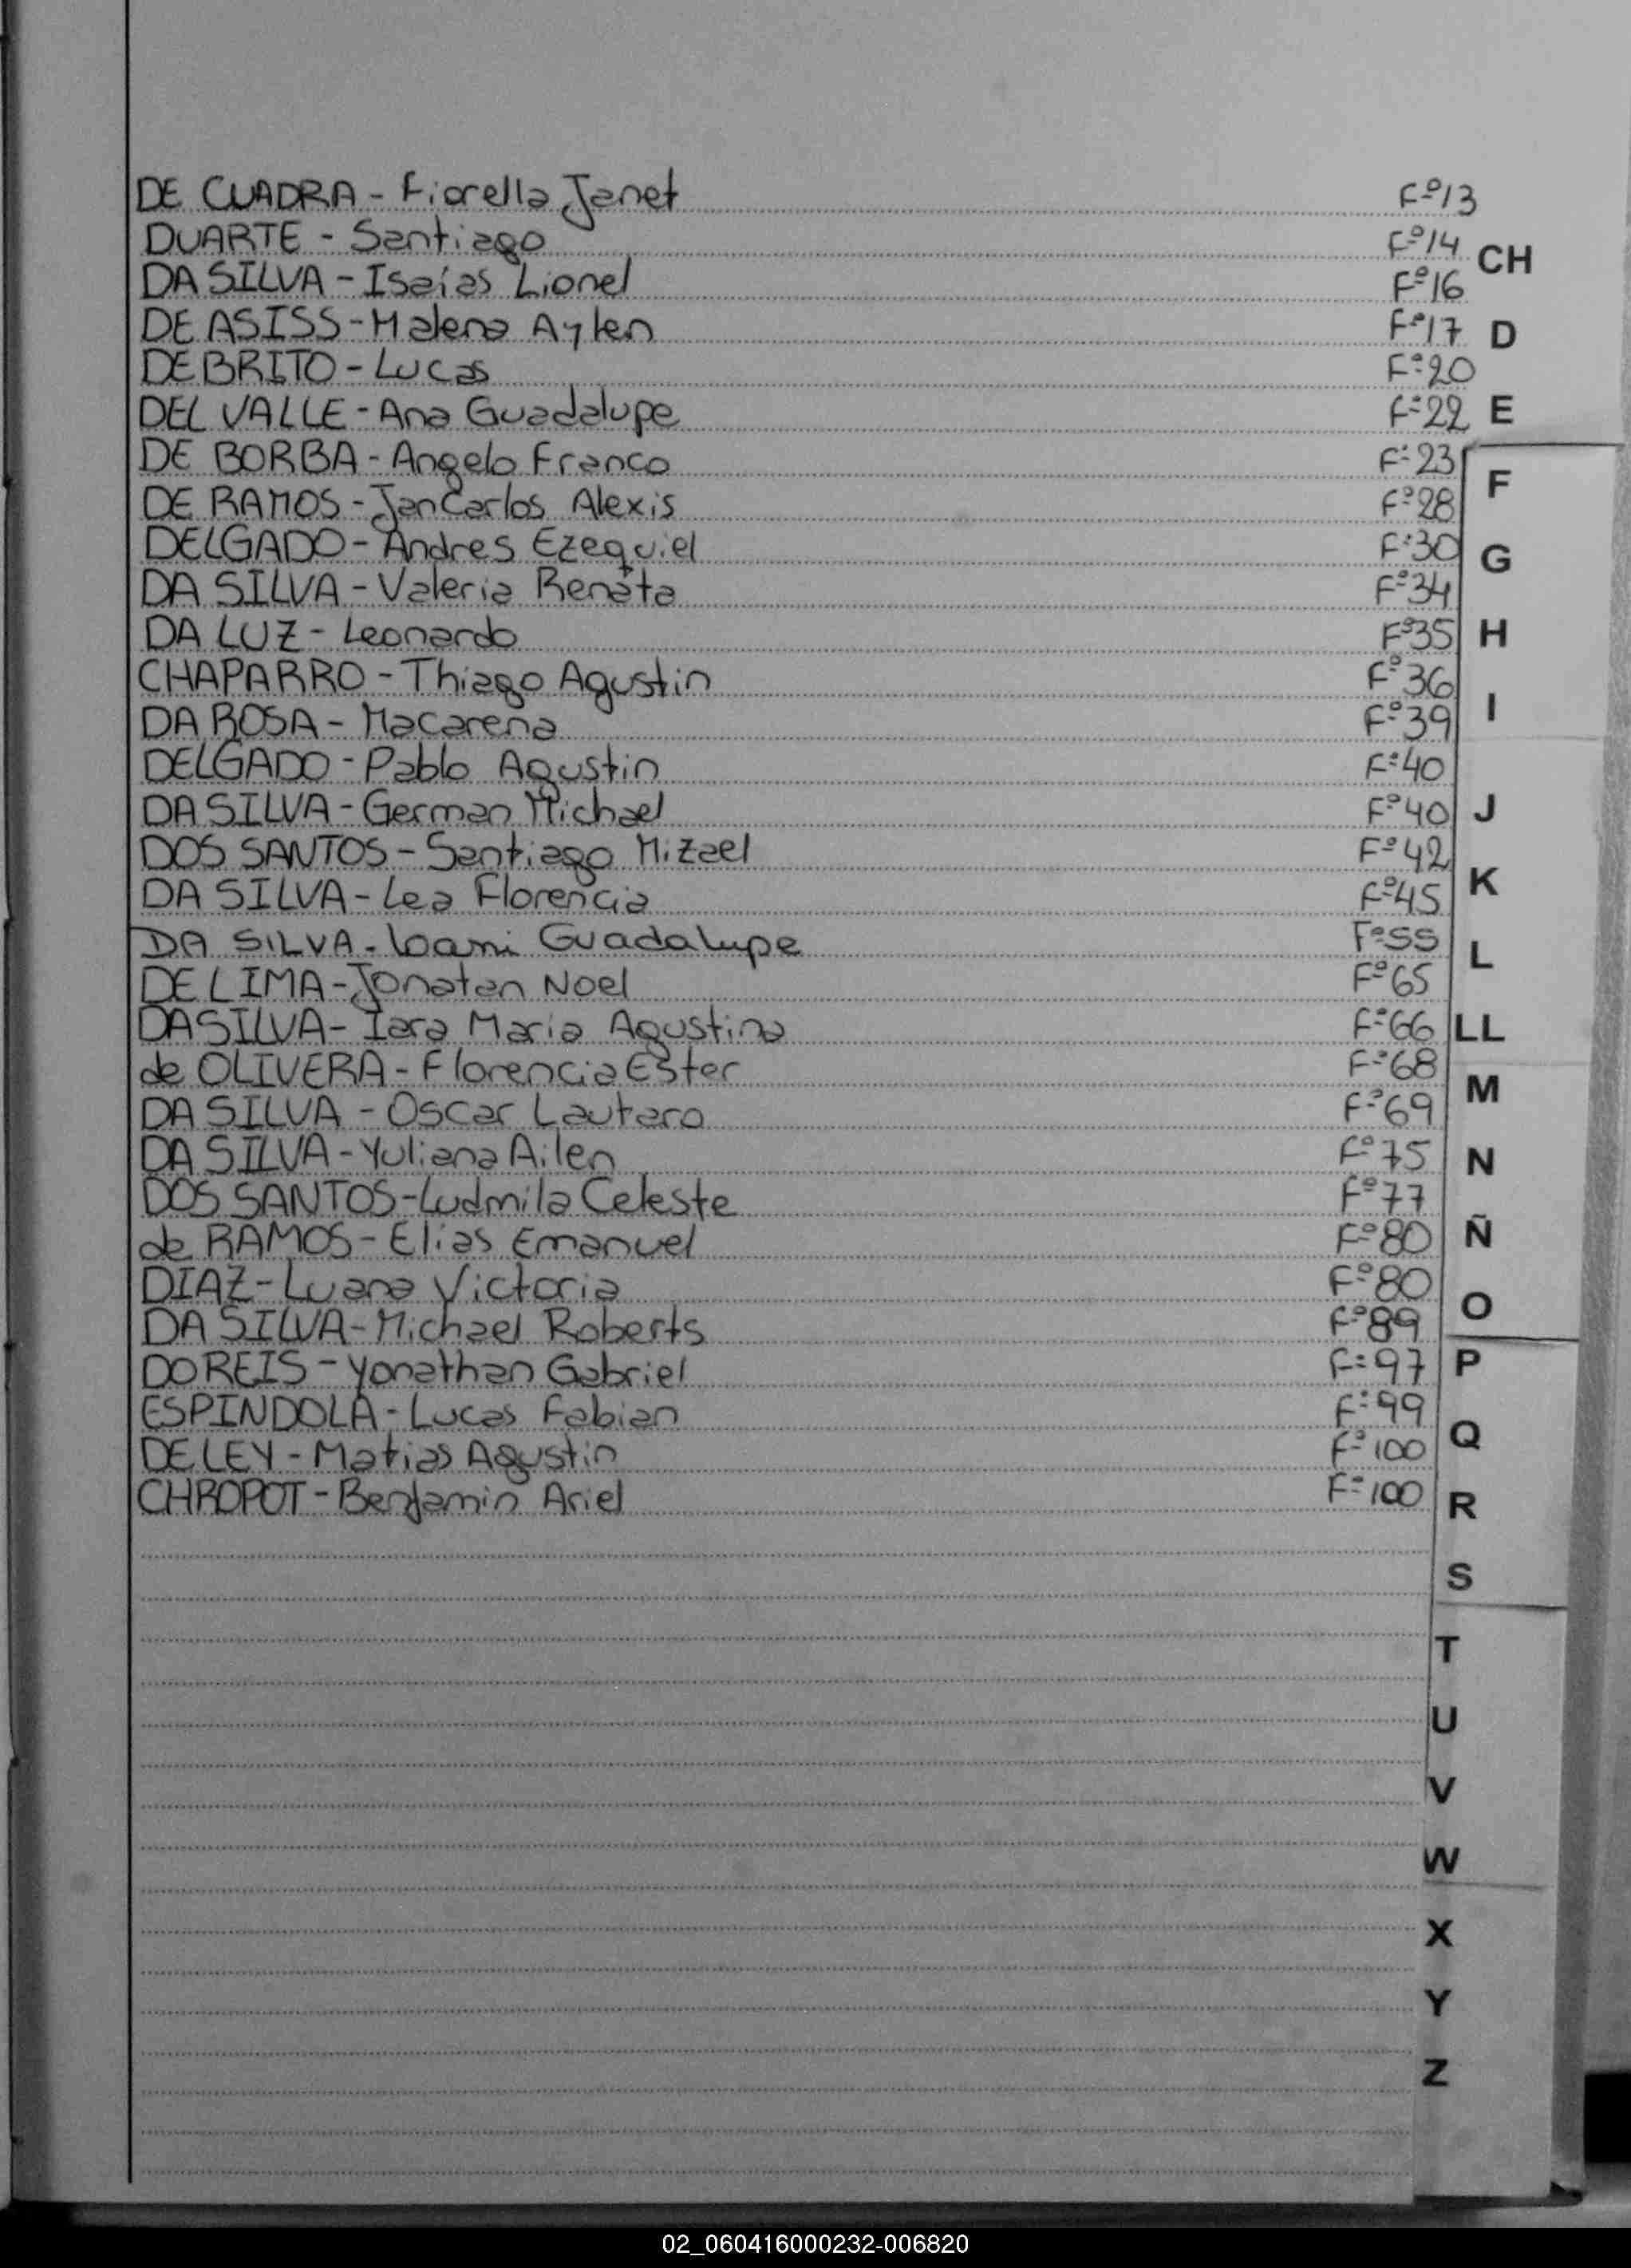 DE CUADRA - Fiorella Janet F°13
DUARTE - Santiago F°14
CH
DA SILVA - Isaías Lionel F°16
DE ASISS - Malena Aylen F°17
D
DE BRITO - Lucas F°20
DEL VALLE - Ana Guadalupe F°22
E
DE BORBA - Angelo Franco F°23
F
DE RAMOS - JanCarlos Alexis F°28
DELGADO - Andres Ezequiel F°30
G
DA SILVA - Valeria Renata F°34
DA LUZ - Leonardo F°35
H
CHAPARRO - Thiago Agustin F°36
I
DA ROSA - Macarena F°39
DELGADO - Pablo Agustin F°40
DA SILVA - German Michael F°40
J
DOS SANTOS - Santiago Mizael F°42
K
DA SILVA - Lea Florencia F°45
DA SILVA - Guadalupe F°55
L
DE LIMA - Jonatan Noel F°65
DA SILVA - Iara Maria Agustina F°66
LL
de OLIVERA - Florencia Ester F°68
M
DA SILVA - Oscar Lautaro F°69
DA SILVA - Yuliana Ailen F°75
N
DOS SANTOS - Ludmila Celeste F°77
de RAMOS - Elias Emanuel F°80
Ñ
DIAZ - Luana Victoria F°80
O
DA SILVA - Michael Roberts F°89
DO REIS - Yonathan Gabriel F°97
P
ESPINDOLA - Lucas Fabian F°99
Q
DE LEY - Matias Agustin F°100
CHROPOT - Benjamin Ariel F°100
R
S
T
U
V
W
X
Y
Z
02_060416000232-006820